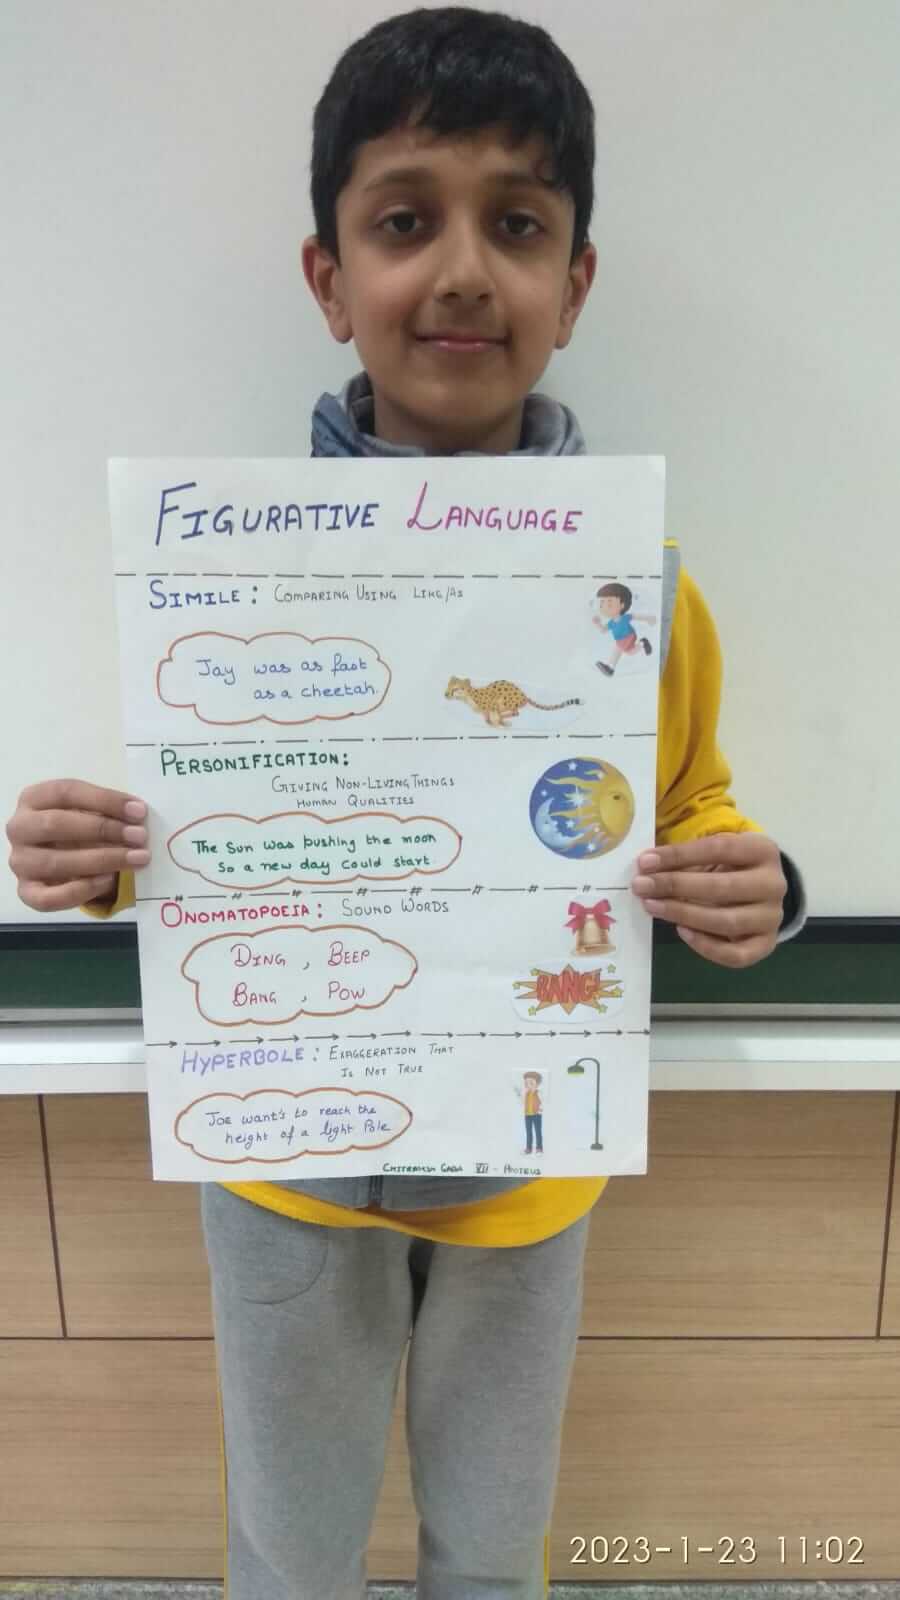 FIGURATIVE LANGUAGE
SIMILE: COMPARING USING LIKE/AS
Jay was as fast
as a cheetah.
PERSONIFICATION:
GIVING NON-LIVING THINGS
HUMAN QUALITIES
The Sun was pushing the moon
So a new day could start.
ONOMATOPOEIA: SOUND WORDS
DING, BEEP
BANG, POW
BANG!
HYPERBOLE: EXAGGERATION THAT
IS NOT TRUE
Joe want's to reach the
height of a light Pole
VII - PROTEUS
2023-1-23 11:02